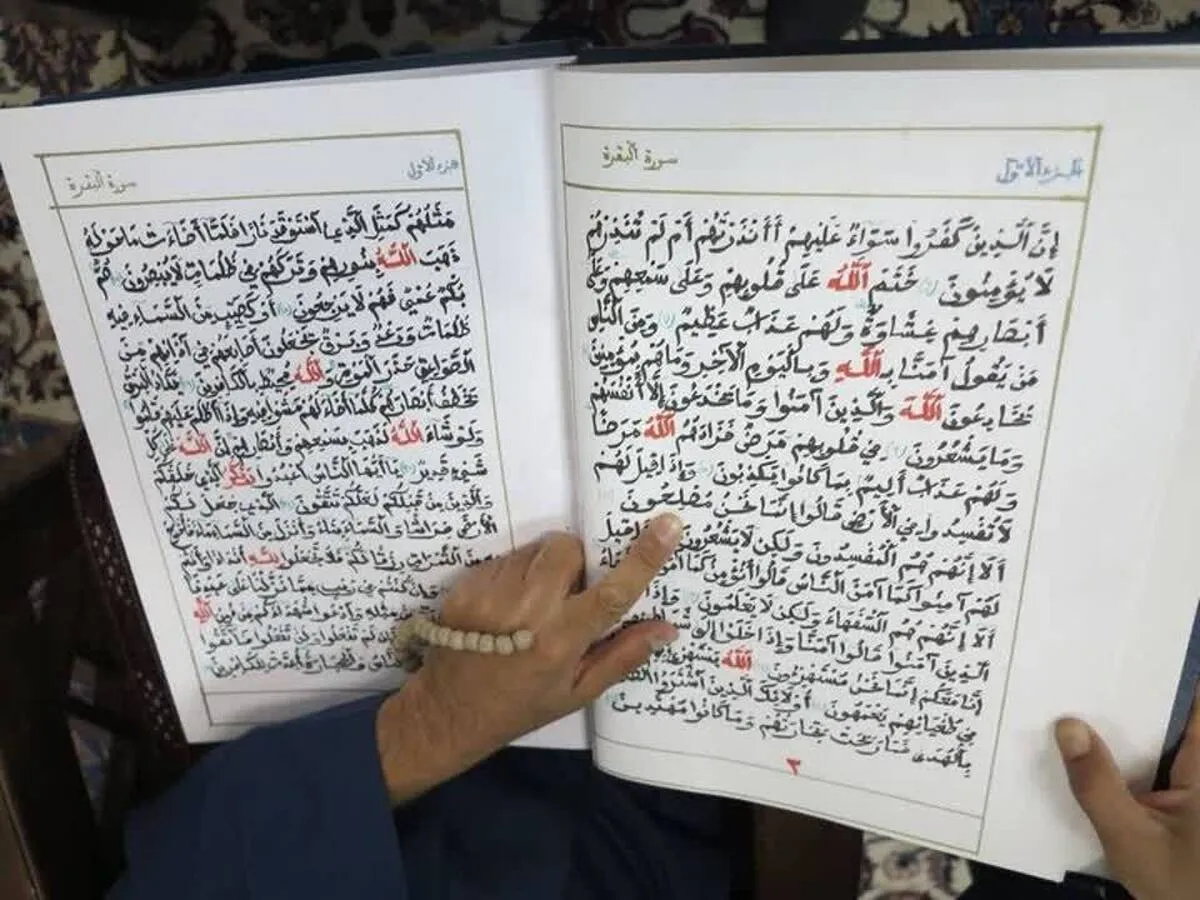 الجزء الاول سورة البقرة
إِنَّ الَّذِينَ كَفَرُوا سَوَاءٌ عَلَيْهِمْ أَأَنْذَرْتَهُمْ أَمْ لَمْ تُنْذِرْهُمْ
لَا يُؤْمِنُونَ (٦) خَتَمَ اللَّهُ عَلَى قُلُوبِهِمْ وَعَلَى سَمْعِهِمْ وَعَلَى
أَبْصَارِهِمْ غِشَاوَةٌ وَلَهُمْ عَذَابٌ عَظِيمٌ (٧) وَمِنَ النَّاسِ
مَنْ يَقُولُ آمَنَّا بِاللَّهِ وَبِالْيَوْمِ الْآخِرِ وَمَا هُمْ بِمُؤْمِنِينَ
يُخَادِعُونَ اللَّهَ وَالَّذِينَ آمَنُوا وَمَا يَخْدَعُونَ إِلَّا أَنْفُسَهُمْ
وَمَا يَشْعُرُونَ (٩) فِي قُلُوبِهِمْ مَرَضٌ فَزَادَهُمُ اللَّهُ مَرَضًا
وَلَهُمْ عَذَابٌ أَلِيمٌ بِمَا كَانُوا يَكْذِبُونَ (١٠) وَإِذَا قِيلَ لَهُمْ
لَا تُفْسِدُوا فِي الْأَرْضِ قَالُوا إِنَّمَا نَحْنُ مُفْلِحُونَ (١١)
أَلَا إِنَّهُمْ هُمُ الْمُفْسِدُونَ وَلَكِنْ لَا يَشْعُرُونَ قِيلَ
لَهُمْ آمِنُوا كَمَا آمَنَ النَّاسُ قَالُوا أَنُؤْمِنُ كَمَا
أَلَا إِنَّهُمْ هُمُ السُّفَهَاءُ وَلَكِنْ لَا يَعْلَمُونَ وَإِذَا
الَّذِينَ آمَنُوا قَالُوا آمَنَّا وَإِذَا خَلَوْا إِلَى
إِنَّا مَعَكُمْ إِنَّمَا نَحْنُ مُسْتَهْزِئُونَ اللَّهُ يَسْتَهْزِئُ
فِي طُغْيَانِهِمْ يَعْمَهُونَ أُولَئِكَ الَّذِينَ اشْتَرَوُا
بِالْهُدَى فَمَا رَبِحَتْ تِجَارَتُهُمْ وَمَا كَانُوا مُهْتَدِينَ
٣
الجزء الاول سورة البقرة
مَثَلُهُمْ كَمَثَلِ الَّذِي اسْتَوْقَدَ نَارًا فَلَمَّا أَضَاءَتْ مَا حَوْلَهُ
ذَهَبَ اللَّهُ بِنُورِهِمْ وَتَرَكَهُمْ فِي ظُلُمَاتٍ لَا يُبْصِرُونَ صُمٌّ
بُكْمٌ عُمْيٌ فَهُمْ لَا يَرْجِعُونَ أَوْ كَصَيِّبٍ مِنَ السَّمَاءِ فِيهِ
ظُلُمَاتٌ وَرَعْدٌ وَبَرْقٌ يَجْعَلُونَ أَصَابِعَهُمْ فِي آذَانِهِمْ مِنَ
الصَّوَاعِقِ حَذَرَ الْمَوْتِ وَاللَّهُ مُحِيطٌ بِالْكَافِرِينَ يَكَادُ الْبَرْقُ
يَخْطَفُ أَبْصَارَهُمْ كُلَّمَا أَضَاءَ لَهُمْ مَشَوْا فِيهِ وَإِذَا أَظْلَمَ عَلَيْهِمْ قَامُوا
وَلَوْ شَاءَ اللَّهُ لَذَهَبَ بِسَمْعِهِمْ وَأَبْصَارِهِمْ إِنَّ اللَّهَ عَلَى كُلِّ
شَيْءٍ قَدِيرٌ يَا أَيُّهَا النَّاسُ اعْبُدُوا رَبَّكُمُ الَّذِي خَلَقَكُمْ
وَالَّذِينَ مِنْ قَبْلِكُمْ لَعَلَّكُمْ تَتَّقُونَ الَّذِي جَعَلَ لَكُمُ
الْأَرْضَ فِرَاشًا وَالسَّمَاءَ بِنَاءً وَأَنْزَلَ مِنَ السَّمَاءِ مَاءً
مِنَ الثَّمَرَاتِ رِزْقًا لَكُمْ فَلَا تَجْعَلُوا لِلَّهِ أَنْدَادًا وَأَنْتُمْ
وَإِنْ كُنْتُمْ فِي رَيْبٍ مِمَّا نَزَّلْنَا عَلَى عَبْدِنَا
مِثْلِهِ وَادْعُوا شُهَدَاءَكُمْ مِنْ دُونِ اللَّهِ
لَمْ تَفْعَلُوا وَلَنْ تَفْعَلُوا فَاتَّقُوا
النَّاسُ وَالْحِجَارَةُ أُعِدَّتْ لِلْكَافِرِينَ